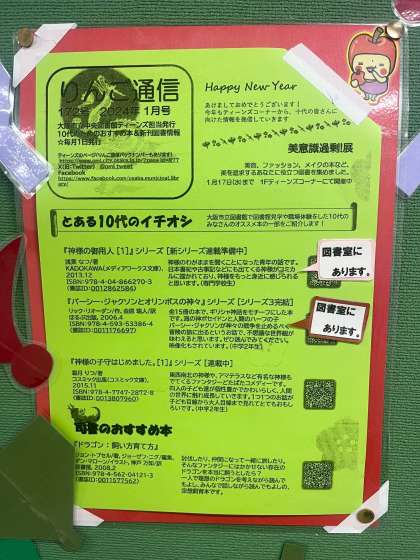 りんご通信
172号 2024年 1月号
大阪市立中央図書館ティーンズ担当発行
10代のためのおすすめ本＆新刊図書情報
☆毎月1日発行
X(旧Twitter) @oml_tweet
Facebook
https://www.facebook.com/osaka.municipal.library/
Happy New Year
あけましておめでとうございます！
今年もティーンズコーナーから、十代の皆さんに
向けた情報を発信していきます
美意識過剰!展
美容、ファッション、メイクの本など、
美を追求するあなたに役立つ図書を集めました。
1月17日(水)まで 1Fティーンズコーナーにて開催中
とある10代のイチオシ
大阪市立図書館で図書館見学や職場体験をした10代の
みなさんのオススメ本の一部をご紹介します！
『神様の御用人［1］』シリーズ［新シリーズ連載準備中］
浅葉 なつ/著
KADOKAWA(メディアワークス文庫)、
2013.12
ISBN:978-4-04-866270-3
(書誌ID:0012862586)
神様のわがままを聞くことになった青年の話です。
日本書紀や古事記などにも出てくる神様がコミカ
ルに描かれており、神様をもっと身近に感じられる
と思います。(専門学校生)
図書室に
あります。
『パーシー・ジャクソンとオリンポスの神々』シリーズ［シリーズ3完結］
リック・リオーダン/作、金原 瑞人/訳
ほるぷ出版、2006.4
ISBN:978-4-593-53386-4
(書誌ID:0011176697)
全15巻の本で、ギリシャ神話をモチーフにした本
です。海の神ポセイドンと人間のハーフの子
パーシー・ジャクソンが神々の戦争を止めるべく
冒険の旅に出るというお話で、不思議な世界観が
味わえると思います。ぜひ読んでみてください。
映像化もされています。(中学2年生)
図書室に
あります。
『神様の子守はじめました。［1］』シリーズ［連載中］
霜月 りつ/著
コスミック出版(コスミック文庫)、
2015.11
ISBN:978-4-7747-2877-8
(書誌ID:0013807960)
東西南北の神様や、アマテラスなど有名な神様も
でてくるファンタジーだったりコメディーです。
四人の子ども達が個性豊かでかわいらしく、人間
の世界に慣れ成長していきます。1つ1つのお話が
子ども目線から大人目線まで見れてとてもおもし
ろいです。(中学2年生)
司書のおすすめ本
『ドラゴン：飼い方育て方』
ジョン・トプセル/著、ジョーゼフ・ニグ/編集、
ダン・マローン/イラスト、神戸 万知/訳
原書房、2008.2
ISBN:978-4-562-04121-3
(書誌ID:0011577562)
討伐したり、仲間になって一緒に旅したり。
そんなファンタジーにはかかせない存在の
ドラゴンを本当に飼うとしたら？
一人で理想のドラゴンを考えながら読んで
もよし、みんなで話しながら読んでもよしの、
空想飼育本です。